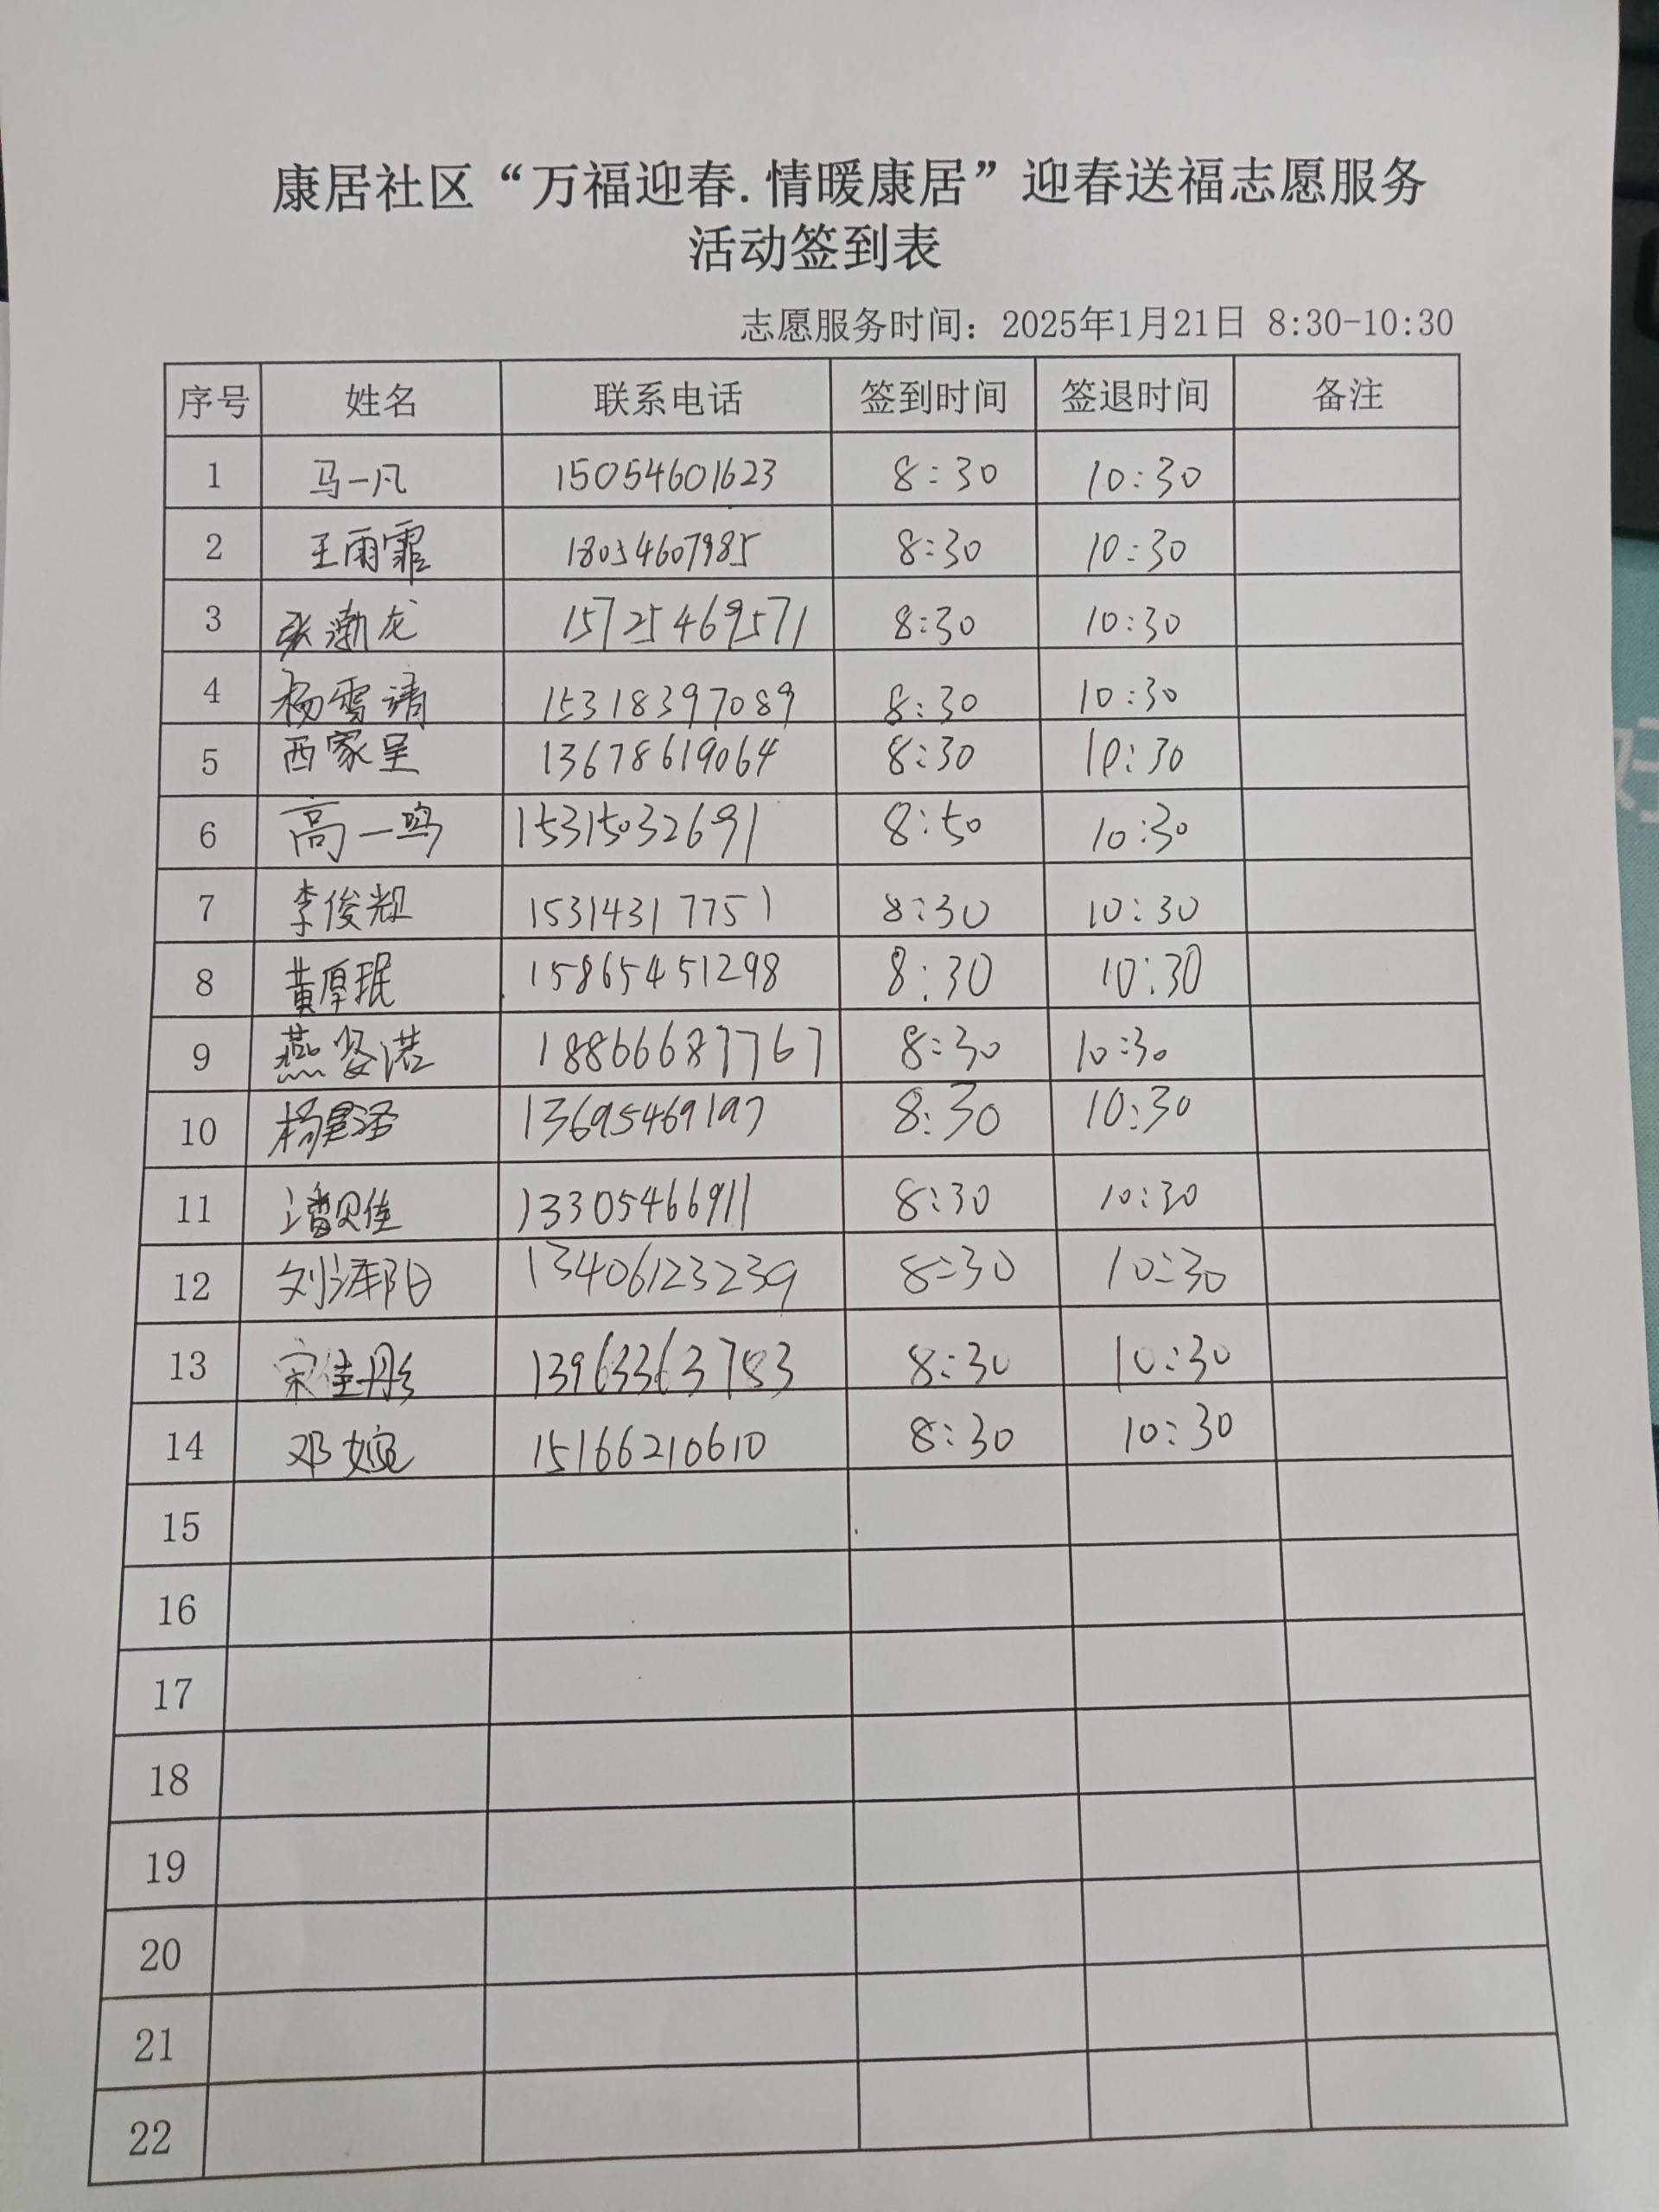 康居社区“万福迎春.情暖康居”迎春送福志愿服务
活动签到表
志愿服务时间：2025年1月21日 8:30-10:30
序号 姓名 联系电话 签到时间 签退时间 备注
1 马一凡 15054601623 8:30 10:30
2 王雨霏 18054607985 8:30 10:30
3 张渤龙 15725469571 8:30 10:30
4 杨雪靖 15318397089 8:30 10:30
5 西家呈 13678619064 8:30 10:30
6 高一鸣 15315032691 8:50 10:30
7 李俊 15314317751 8:30 10:30
8 黄厚珉 15865451298 8:30 10:30
9 燕 18866687767 8:30 10:30
10 杨 13695469197 8:30 10:30
11 潘 佳 13305466911 8:30 10:30
12 刘泽阳 13406123239 8:30 10:30
13 宋佳彤 13963363783 8:30 10:30
14 邓婉 15166210610 8:30 10:30
15
16
17
18
19
20
21
22